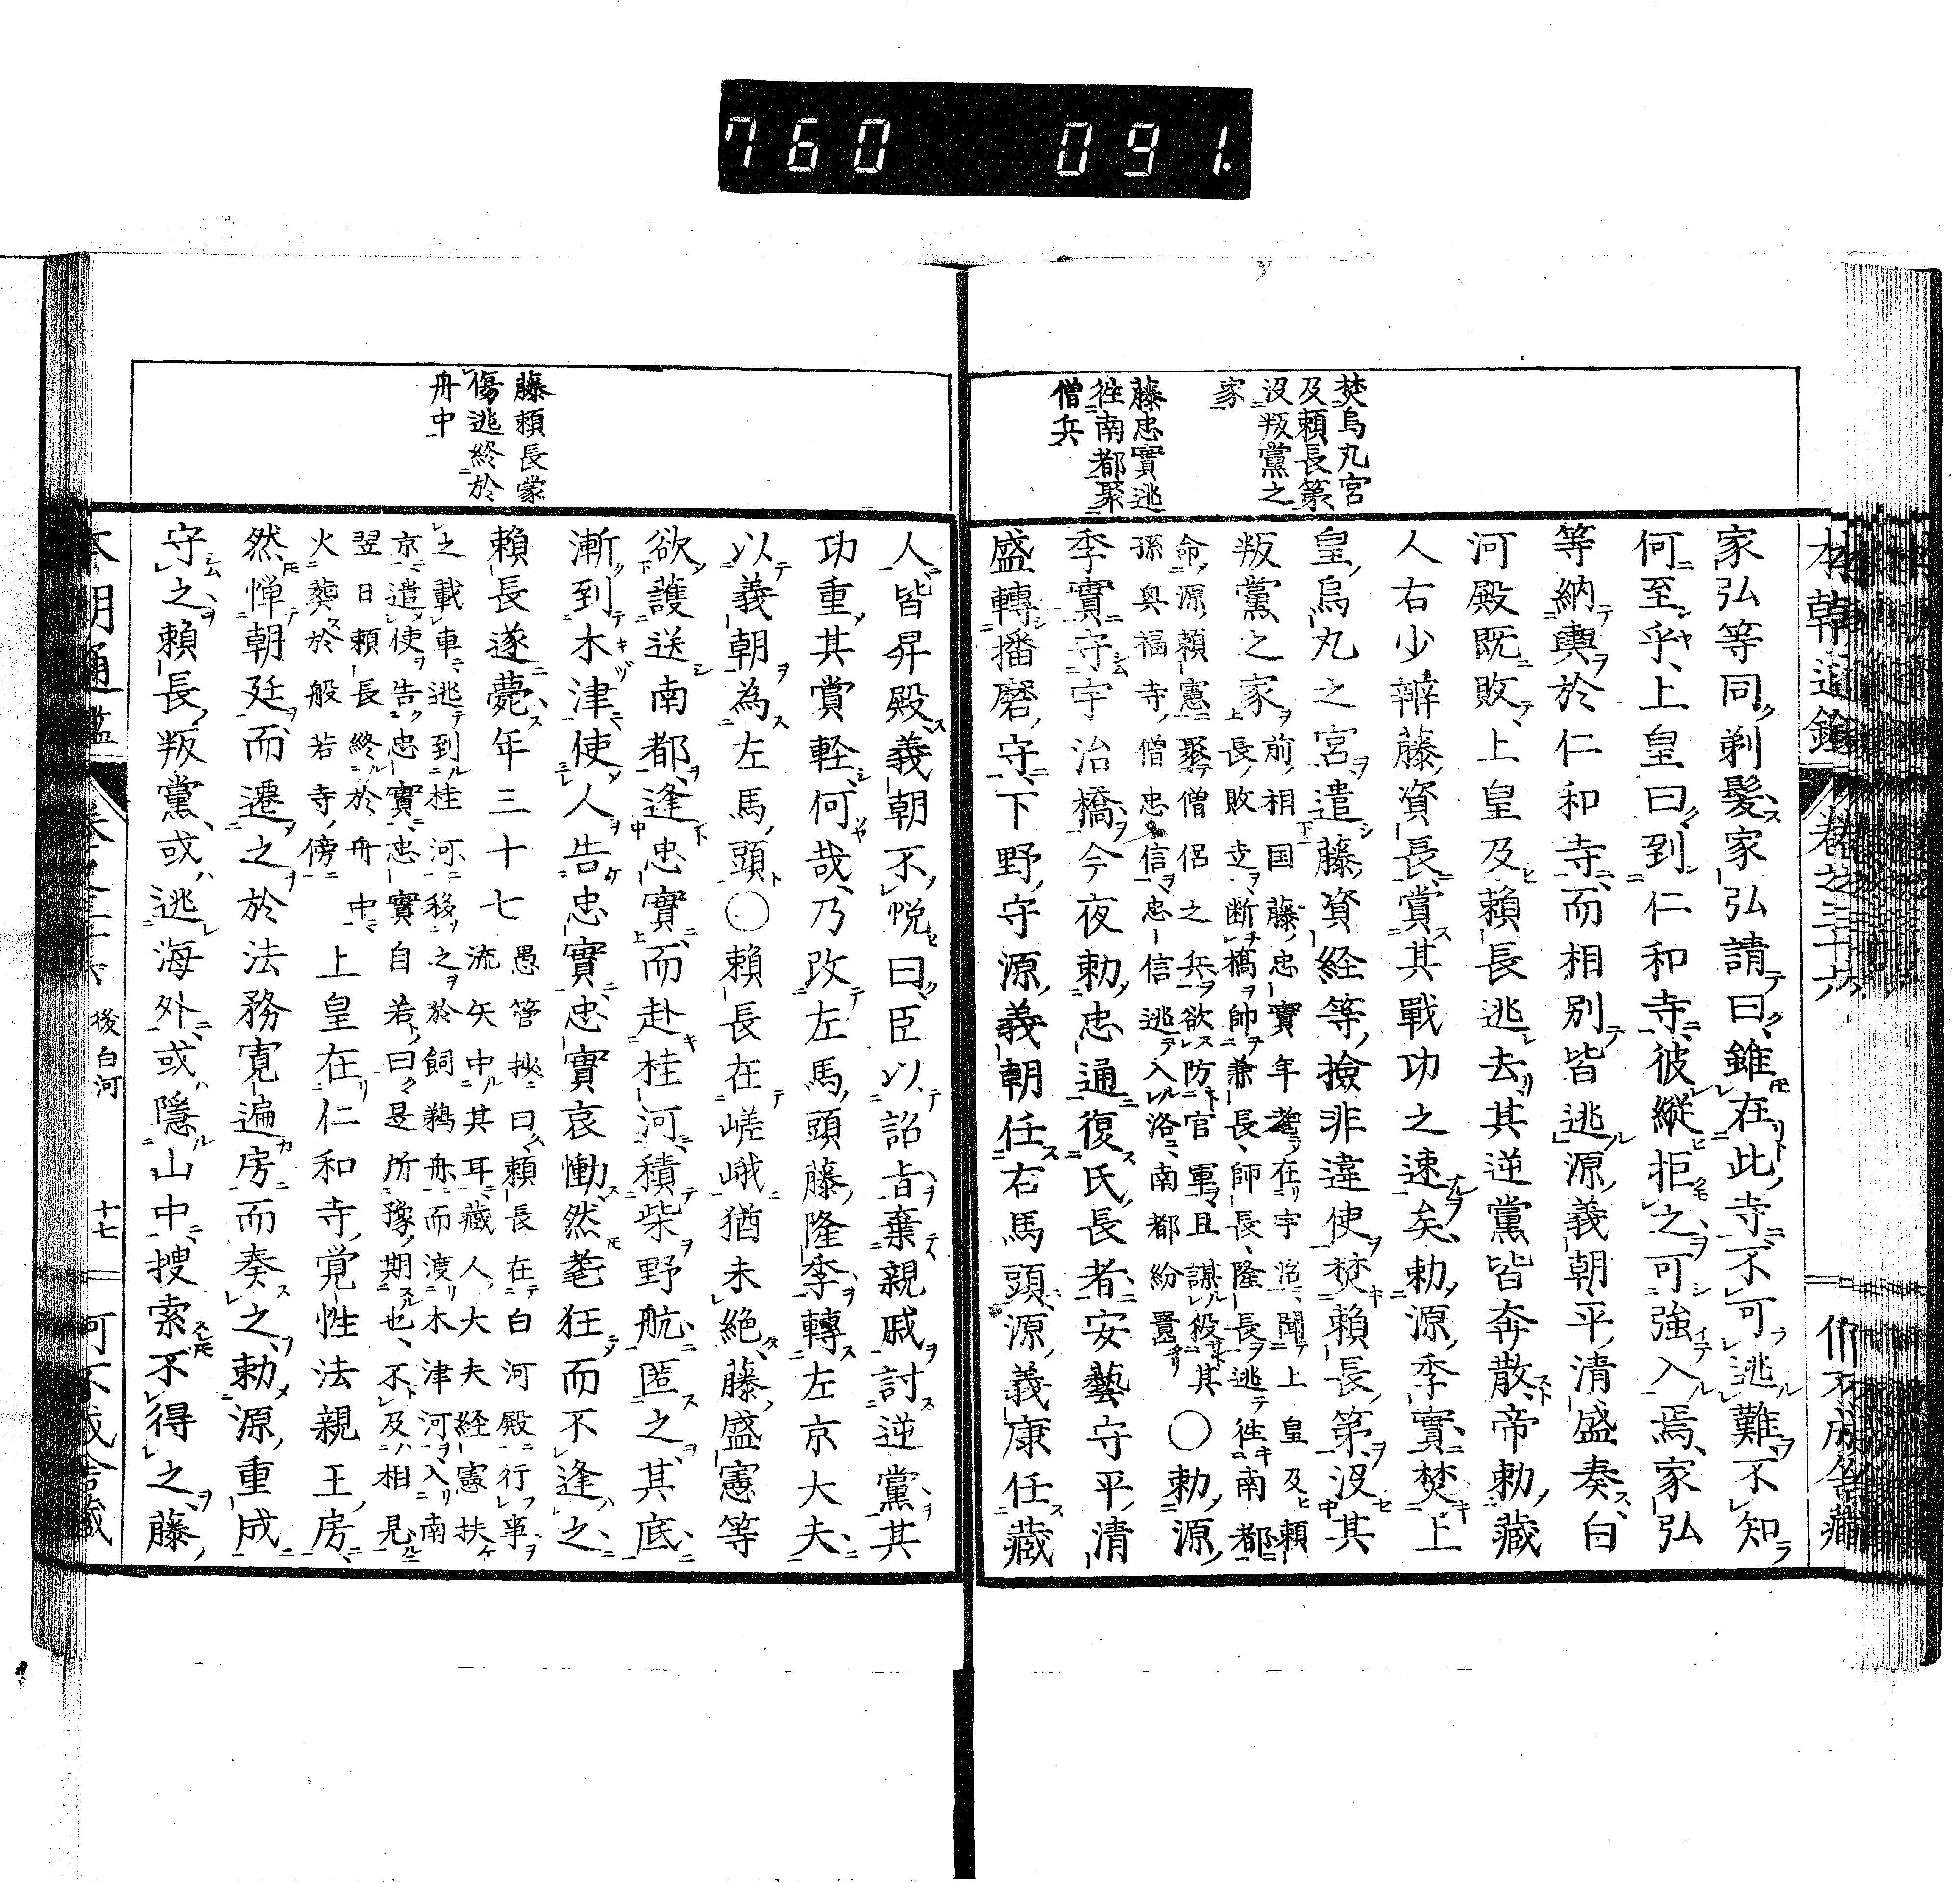 760 091.
焚烏丸宮
及頼長第
没叛黨之
家
藤忠實逃
往南都聚
僧兵
家弘等同剃髮家弘請曰雖在此寺不可逃難不知
何至乎上皇曰到仁和寺彼縱拒之可強入焉家弘
等納輿於仁和寺而相別皆逃源義朝平清盛奏白
河殿既敗上皇及頼長逃去其逆黨皆奔散帝勅藏
人右少辨藤資長賞其戰功之速矣勅源季實焚上
皇烏丸之宮遣藤資経等撿非違使焚頼長第没其
叛黨之家
前相国藤忠實年耄在宇治聞上皇及頼
長敗走断橋帥兼長師長隆長逃往南都
命源頼憲聚僧侶之兵欲防官軍且謀役其
孫奥福寺僧忠信忠信逃入洛南都紛囂
〇勅源
季實守宇治橋今夜勅忠通復氏長者安藝守平清
盛轉播磨守下野守源義朝任右馬頭源義康任藏
藤頼長蒙
傷逃終於
舟中
人皆昇殿義朝不悦曰臣以詔旨棄親戚討逆黨其
功重其賞軽何哉乃改左馬頭藤隆季轉左京大夫
以義朝為左馬頭〇頼長在嵯峨猶未絶藤盛憲等
欲護送南都逢忠實而赴桂河積柴野航匿之其底
漸到木津使人告忠實忠實哀慟然耄狂而不逢之
頼長遂薨年三十七
愚管抄曰頼長在白河殿行事
流矢中其耳藏人大夫経憲扶
之載車逃到桂河移之於飼鵜舟而渡木津河入南
京遣使告忠實忠實自若曰是所豫期也不及相見
翌日頼長終於舟中
火葬於般若寺傍
上皇在仁和寺覚性法親王房
然憚朝廷而遷之於法務寛遍房而奏之勅源重成
守之頼長叛黨或逃海外或隱山中搜索不得之藤
本朝通鑑
卷之三十六
後白河
十七